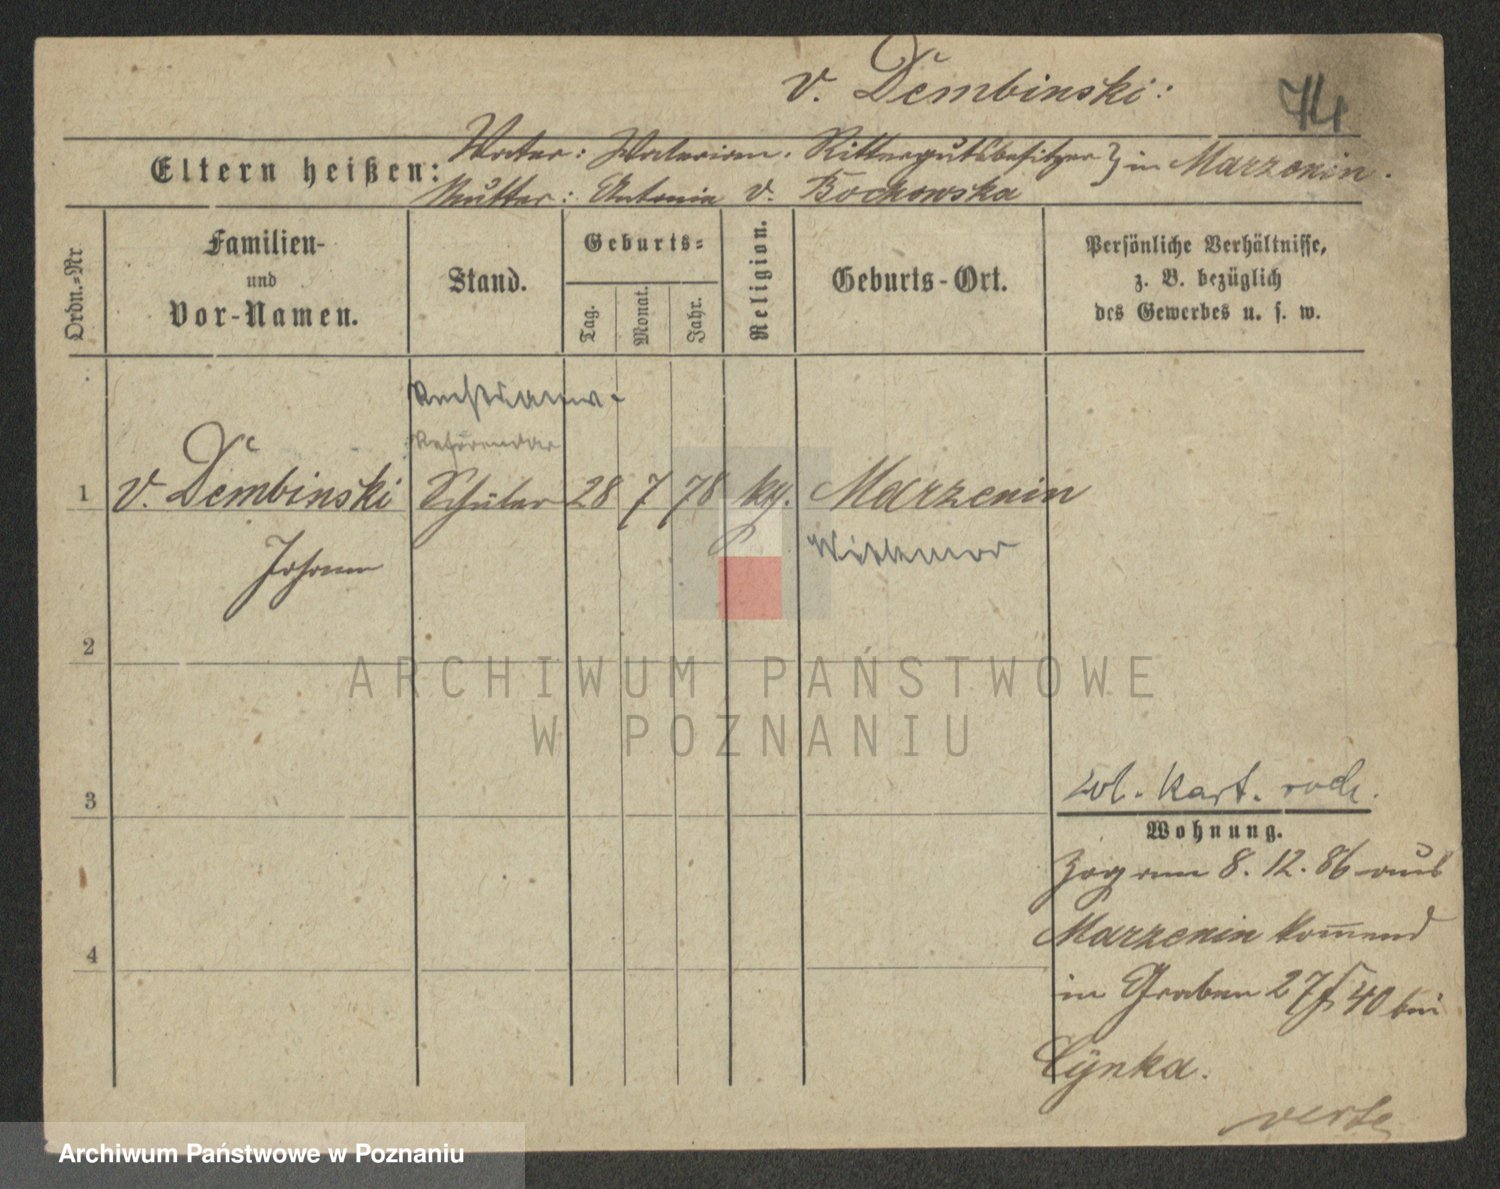 v. Dembinski:
74
Eltern heißen:
Vater: Valerian. Rittergutsbesitzer } in Marzenin.
Mutter: Antonie v. Bochowska
Ordn.-Nr
Familien-
und
Vor-Namen.
Stand.
Geburts-
Tag.
Monat.
Jahr.
Religion.
Geburts-Ort.
Persönliche Verhältnisse,
z. B. bezüglich
des Gewerbes u. s. w.
Rechtsanw-
Referendar
1 v. Dembinski Schüler 28 7 78 kg. Marzenin
Johann
2
3
4
Kart. roch.
Wohnung.
Zog am 8. 12. 86 aus
Marzenin komend
in Graben 27/40 bei
Cynka.
verte
ARCHIWUM PAŃSTWOWE
W POZNANIU
Archiwum Państwowe w Poznaniu